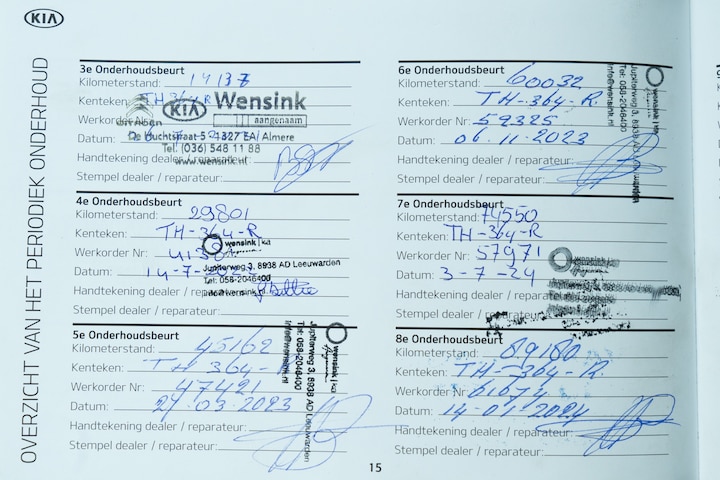 KIA
OVERZICHT VAN HET PERIODIEK ONDERHOUD
3e Onderhoudsbeurt
Kilometerstand: 14137
Kenteken: TH-364-R
KIA Wensink
aangenaam
Werkorder Nr:
De Huchtstraat 5 1327 EA Almere
Datum:
Tel. (036) 548 11 88
Handtekening dealer / reparateur:
www.wensink.nl
Stempel dealer / reparateur:
4e Onderhoudsbeurt
Kilometerstand: 29801
Kenteken: TH-364-R
wensink | kia
Werkorder Nr:
Jupiterweg 3, 8938 AD Leeuwarden
Datum: 14-7-
Tel: 058-2046400
Handtekening dealer / reparateur:
info@wensink.nl
Stempel dealer / reparateur:
5e Onderhoudsbeurt
Kilometerstand: 45162
Kenteken: TH-364-R
Werkorder Nr: 47421
Datum: 24-03-2023
Handtekening dealer / reparateur:
Stempel dealer / reparateur:
wensink | kia
Jupiterweg 3, 8938 AD Leeuwarden
Tel: 058-2046400
info@wensink.nl
6e Onderhoudsbeurt
Kilometerstand: 60032
Kenteken: TH-364-R.
Werkorder Nr: 59325
Datum: 06-11-2023
Handtekening dealer / reparateur:
Stempel dealer / reparateur:
wensink | kia
Jupiterweg 3, 8938 AD Leeuwarden
Tel: 058-2046400
info@wensink.nl
7e Onderhoudsbeurt
Kilometerstand: 74550
Kenteken: TH-364-R
Werkorder Nr: 57971
wensink
Datum: 3-7-24
Handtekening dealer / reparateur:
Stempel dealer / reparateur:
8e Onderhoudsbeurt
Kilometerstand: 89180
Kenteken: TH-364-R.
Werkorder Nr: 61674
Datum: 14-01-2024
Handtekening dealer / reparateur:
Stempel dealer / reparateur:
15